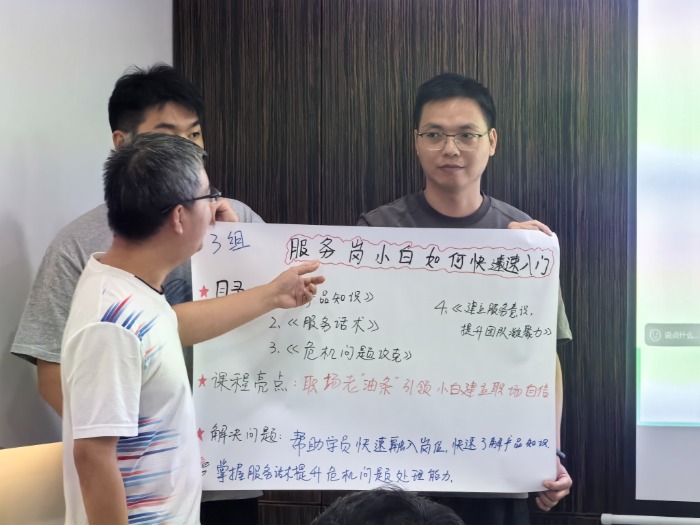 3组
服务岗小白如何快速入门
★目录
产品知识》
2.《服务话术》
3.《危机问题攻克》
4.《建立服务意识,
提升团队凝聚力》
★课程亮点:职场老"油条"引领小白建立职场自信
★解决问题:帮助学员快速融入岗位,快速了解产品知识
掌握服务话术提升危机问题处理能力.
说点什么...